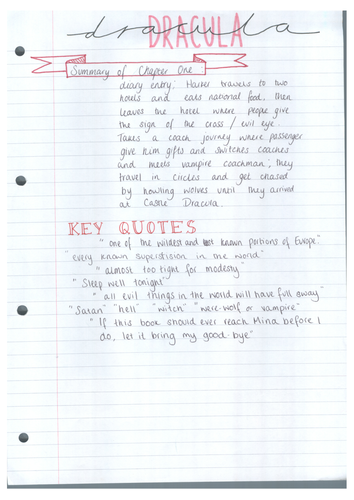 dracula
DRACULA
Summary of Chapter One
diary entry. Harker travels to two
hotels and eats national food, then
leaves the hotel where people give
the sign of the cross / evil eye.
Takes a coach journey where passenger
give him gifts and switches coaches
and meets vampire coachman; they
travel in circles and get chased
by howling wolves until they arrived
at Castle Dracula.
KEY QUOTES
"one of the wildest and known portions of Europe"
"every known superstition in the world"
"almost too tight for modesty"
"Sleep well tonight"
"all evil things in the world will have full sway"
"Satan" "hell" "witch" "were-wolf or vampire"
"If this book should ever reach Mina before I
do, let it bring my good-bye"